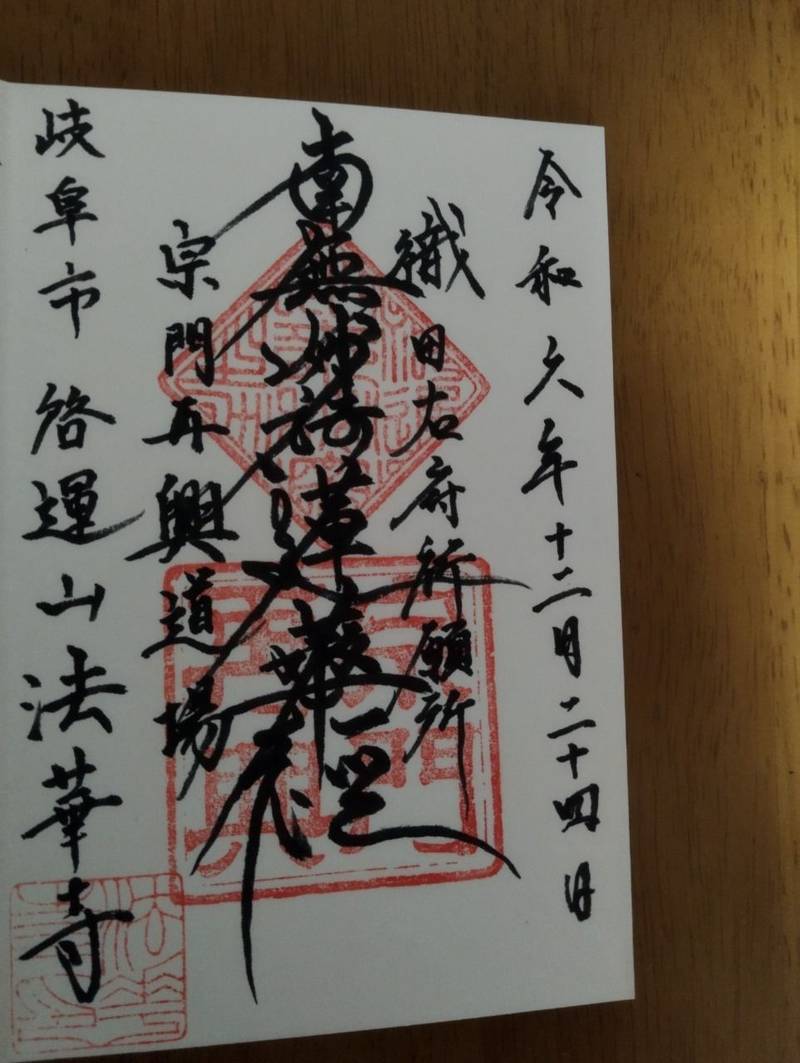 令和六年十二月二十四日
織田右府祈願所
南無妙法蓮華經
宗門再興道場
岐阜市 啓運山 法華寺